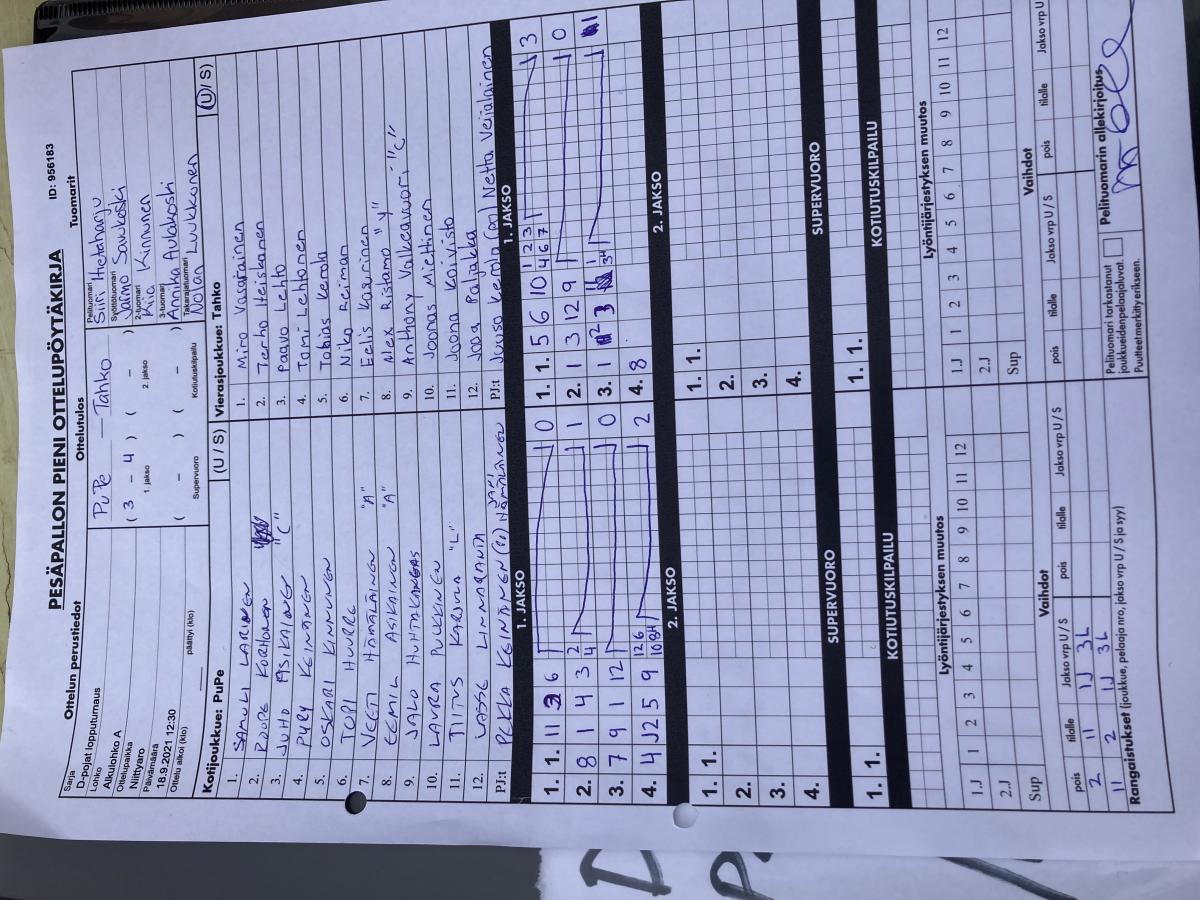 PESÄPALLON PIENI OTTELUPÖYTÄKIRJA ID: 956183
Ottelun perustiedot
Sarja
D-pojat lopputurnaus
Lohko
Alkulohko A
Ottelupaikka
Niittyaro
Päivämäärä
18.9.2021 12:30
Ottelu alkoi (klo) päättyi (klo)
Ottelutulos
PuPe – Tahko
( 3 – 4 ) ( – )
1. jakso 2. jakso
( – ) ( – )
Supervuoro Kotiutuskilpailu
Tuomarit
Pelituomari
Suri Hietaharju
Syöttötuomari
Jarmo Savukoski
2-tuomari
Kia Kinnunen
3-tuomari
Annika Aulakoski
Takarajatuomari
Nolan Luukkonen
Kotijoukkue: PuPe (U / S)
1. SAMULI LARINEN
2. ROOPE KORHONEN
3. JUHO ASIKAINEN "C"
4. PYRY KEINÄNEN
5. OSKARI KINNUNEN
6. TOPI HUURRE
7. VEETI HÄMÄLÄINEN "A"
8. EEMIL ASIKAINEN "A"
9. JALO HUHTAKANGAS
10. LAURA PULKKINEN
11. TIITUS KARJULA "L"
12. LASSE LINNARANTA
PJ:t PEKKA KEINÄNEN (PJ) JARI HÄMÄLÄINEN
Vierasjoukkue: Tahko (U / S)
1. Miro Vatarainen
2. Termo Heiskanen
3. Paavo Lehto
4. Tomi Lehtonen
5. Tobias Kerola
6. Nika Reiman
7. Eelis Kasurinen
8. Alex Ristamo "y"
9. Anthony Valkeavuori "C"
10. Joonas Miettinen
11. Joona Koivisto
12. Joa Paljakka
PJ:t Juuso Kerola (PJ) Netta Veijalainen
1. JAKSO
1. 1. 11 2 6 0
2. 8 1 4 3 2 4 1
3. 7 9 1 12 0
4. 4 12 5 9 12 6 10 8 11 2
1. JAKSO
1. 1. 5 6 10 1 2 3 4 6 7 3
2. 1 3 12 9 0
3. 1 2 3 11 1 3 4 1
4. 8
2. JAKSO
1. 1.
2.
3.
4.
2. JAKSO
1. 1.
2.
3.
4.
SUPERVUORO
1. 1.
SUPERVUORO
1. 1.
KOTIUTUSKILPAILU
KOTIUTUSKILPAILU
Lyöntijärjestyksen muutos
1.J 1 2 3 4 5 6 7 8 9 10 11 12
2.J
Sup
Lyöntijärjestyksen muutos
1.J 1 2 3 4 5 6 7 8 9 10 11 12
2.J
Sup
Vaihdot
pois tilalle Jakso vrp U / S pois tilalle Jakso vrp U / S
2 11 1J 3L
11 2 1J 3L
Vaihdot
pois tilalle Jakso vrp U / S pois tilalle Jakso vrp U
Rangaistukset (joukkue, pelaaja nro, jakso vrp U / S ja syy)
Pelituomari tarkastanut
joukkueidenpelaajaluvat.
Puutteet merkitty erikseen.
Pelituomarin allekirjoitus